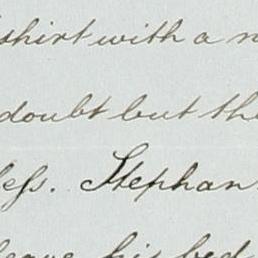 shirt with a
doubt but the
less. Stephan
leave his bed